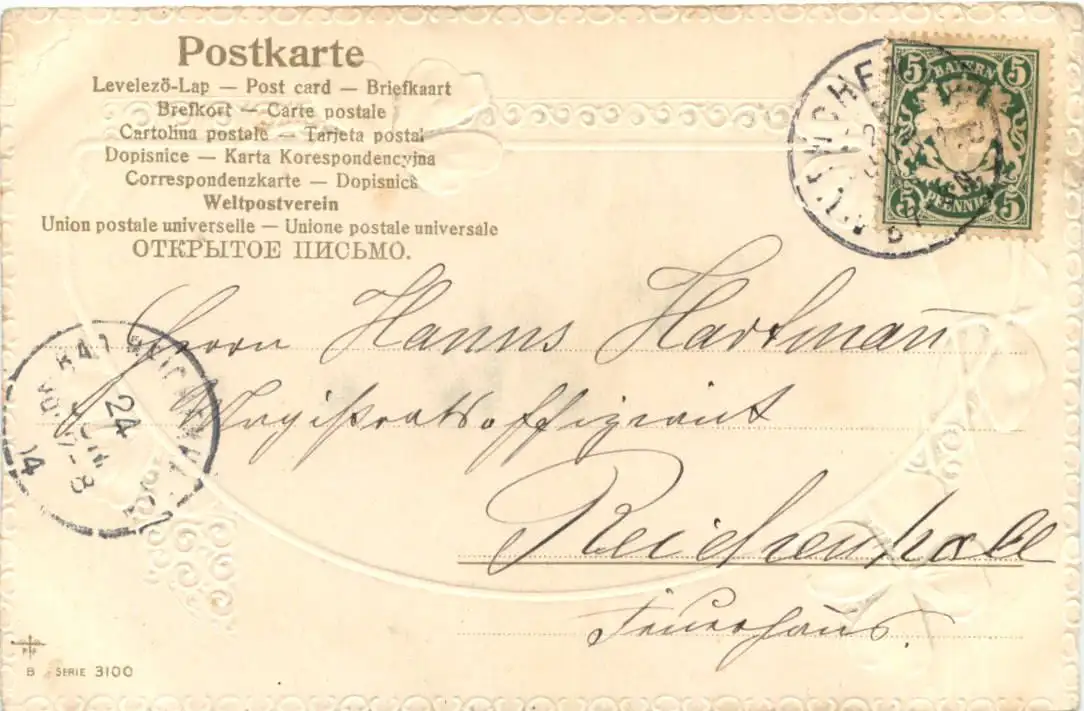 Postkarte
Levelező-Lap — Post card — Briefkaart
Brefkort — Carte postale
Cartolina postale — Tarjeta postal
Dopisnice — Karta Korespondencyjna
Correspondenzkarte — Dopisnica
Weltpostverein
Union postale universelle — Unione postale universale
ОТКРЫТОЕ ПИСЬМО.
5 BAYERN 5
5 PFENNIG 5
Herrn Hanns Hartmañ
Magistratsoffiziant
Reichenhall
Feuerhaus.
24
7-8
B SERIE 3100